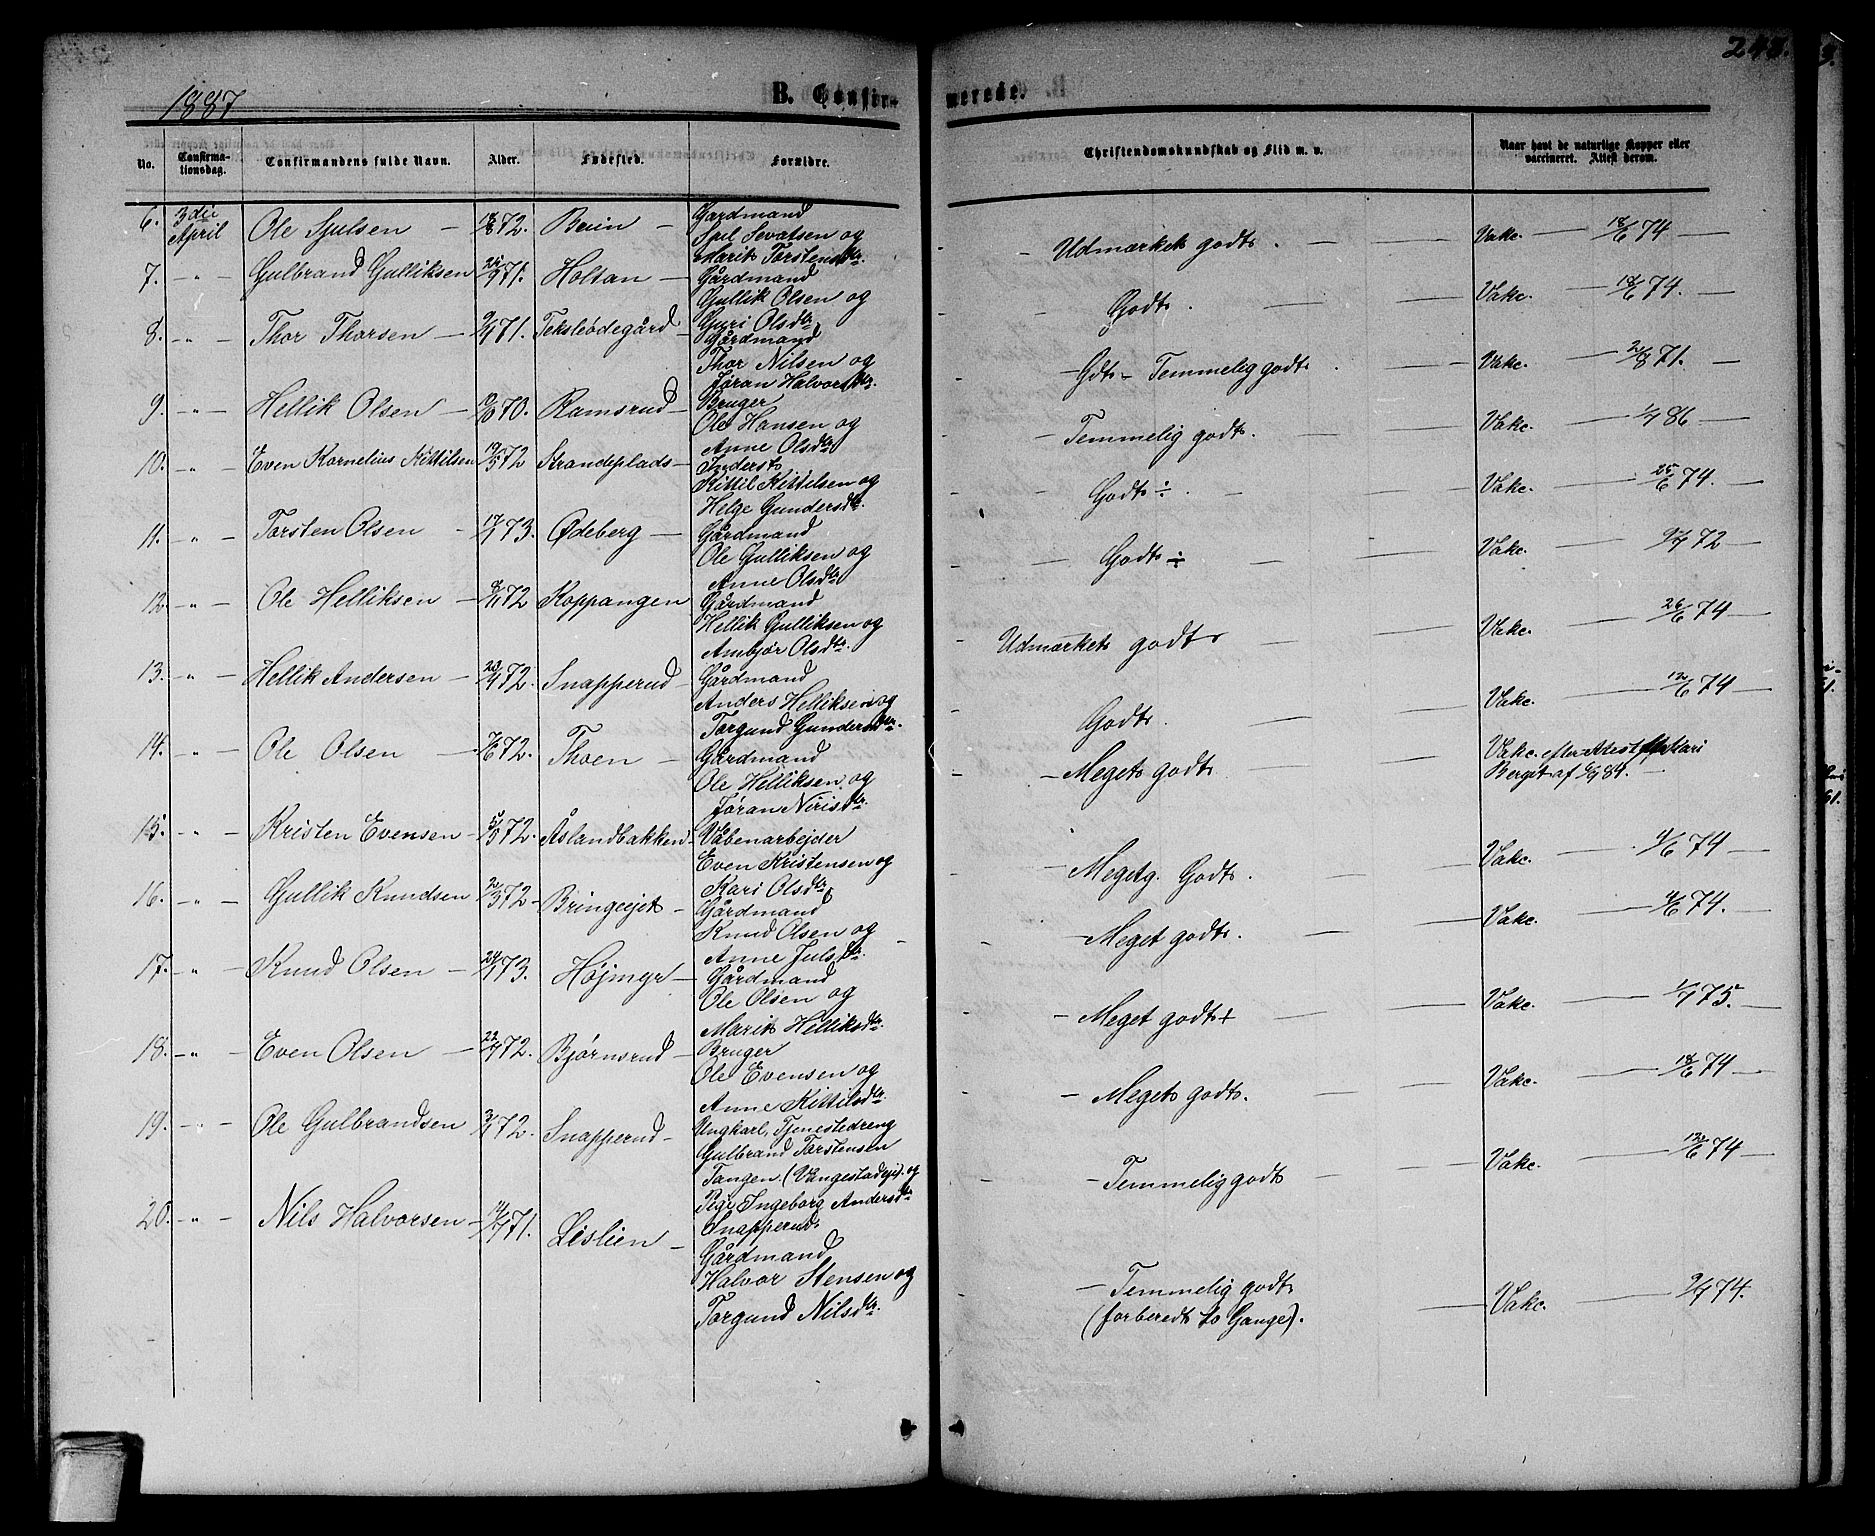 1887
B. Confir-
merede.
No.
Confirma-
tionsdag.
Confirmandens fulde Navn.
Alder.
Fødested.
Forældre.
Christendomskundskab og Flid m. v.
Naar havt de naturlige Kopper eller
vaccineret. Attest derom.
6. 3die April Ole Sjulsen — 72. Beiin — Gårdmand
Sjul Sevatsen og
Marit Torstensdtr.
Udmærket godt. — Vakc. — 18/6 74 —
7. —"— Gulbrand Gulliksen 71. Holtan — Gårdmand
Gullik Olsen og
Guri Olsdtr
Godt. — Vakc. — 18/6 74. —
8. —"— Thor Thorsen — 71. Teksleødegård — Gårdmand
Thor Nilsen og
Jøran Halvorsdtr.
— Gdt - Temmelig godt. — Vakc. — 2/8 71. —
9. —"— Hellik Olsen — 70. Ramsrud — Bruger
Ole Hansen og
Anne Olsdtr
— Temmelig godt. — Vakc. — 86 —
10. —"— Even Kornelius Kittilsen 19/5 72 Strandeplads — Inderst
Kittil Kittilsen og
Helge Gundersdtr.
Godt ÷. — Vakc. — 25/6 74. —
11. —"— Torsten Olsen — 17/1 73. Ødeberg — Gårdmand
Ole Gulliksen og
Anne Olsdtr
Godt ÷ — Vakc. — 72 —
12. —"— Ole Helliksen — 8/11 72 Koppangen Gårdmand
Hellik Gulliksen og
Ambjør Olsdtr.
Udmærket godt — Vakc. — 26/6 74 —
13. —"— Hellik Andersen — 72. Snapperud — Gårdmand
Anders Helliksen og
Torgund Gundersdtr.
Godt. — Vakc. — 12/6 74 —
14. —"— Ole Olsen — 72. Thoen — Gårdmand
Ole Helliksen og
Jøran Nirisdtr.
— Meget godt — Vakc. efter Attest fra Mari
Berget af 84. —
15. —"— Kristen Evensen — 5/5 72. Åslandbakken — Våbenarbejder
Even Kristensen og
Kari Olsdtr
— Megetg. Godt. — Vakc. — 4/6 74 —
16. —"— Gullik Knudsen 2/3 72 — Bringeejet — Gårdmand
Knud Olsen og
Anne Julsdtr.
— Meget godt. — Vakc. — 4/6 74. —
17. —"— Knud Olsen — 24/1 73. Højmyr — Gårdmand
Ole Olsen og
Marit Helliksdtr.
— Meget godt+ — Vakc. — 75. —
18. —"— Even Olsen — 72. Bjørnsrud — Bruger
Ole Evensen og
Anne Kittilsdtr.
— Meget godt. — Vakc. — 18/6 74 —
19. —"— Ole Gulbrandsen 72. Snapperud — Ungkarl, Tjenestedreng
Gulbrand Torstensen
Tangen. (Vangestadeje). og
Pige Ingeborg Andersdtr
Snapperud.
— Temmelig godt — Vakc. — 74 —
20. —"— Nils Halvorsen — 71. Lislien — Gårdmand
Halvor Stensen og
Torgund Nilsdtr.
— Temmelig godt
(forberedt to Gange). — Vakc. — 74.